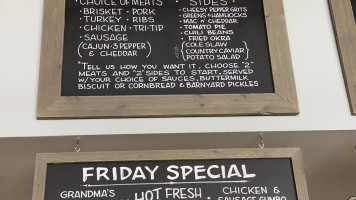 CHOICE OF MEATS
BRISKET • PORK
TURKEY • RIBS
CHICKEN • TRI-TIP
SAUSAGE
(CAJUN • 3 PEPPER
& CHEDDAR)
SIDES
• CHEESY PEPPER GRITS
• GREENS & HAMHOCKS
• MAC N' CHEDDAR
• TOMATO PIE
• CHILI BEANS
• FRIED OKRA
COLE SLAW
COUNTRY CAVIAR
POTATO SALAD
"TELL US HOW YOU WANT IT. CHOOSE "2"
MEATS AND "2" SIDES TO START, SERVED
W/ YOUR CHOICE OF SAUCES, BUTTERMILK
BISCUIT OR CORNBREAD & BARNYARD PICKLES
FRIDAY SPECIAL
GRANDMA'S
HOT FRESH
CHICKEN &
SAUSAGE GUMBO